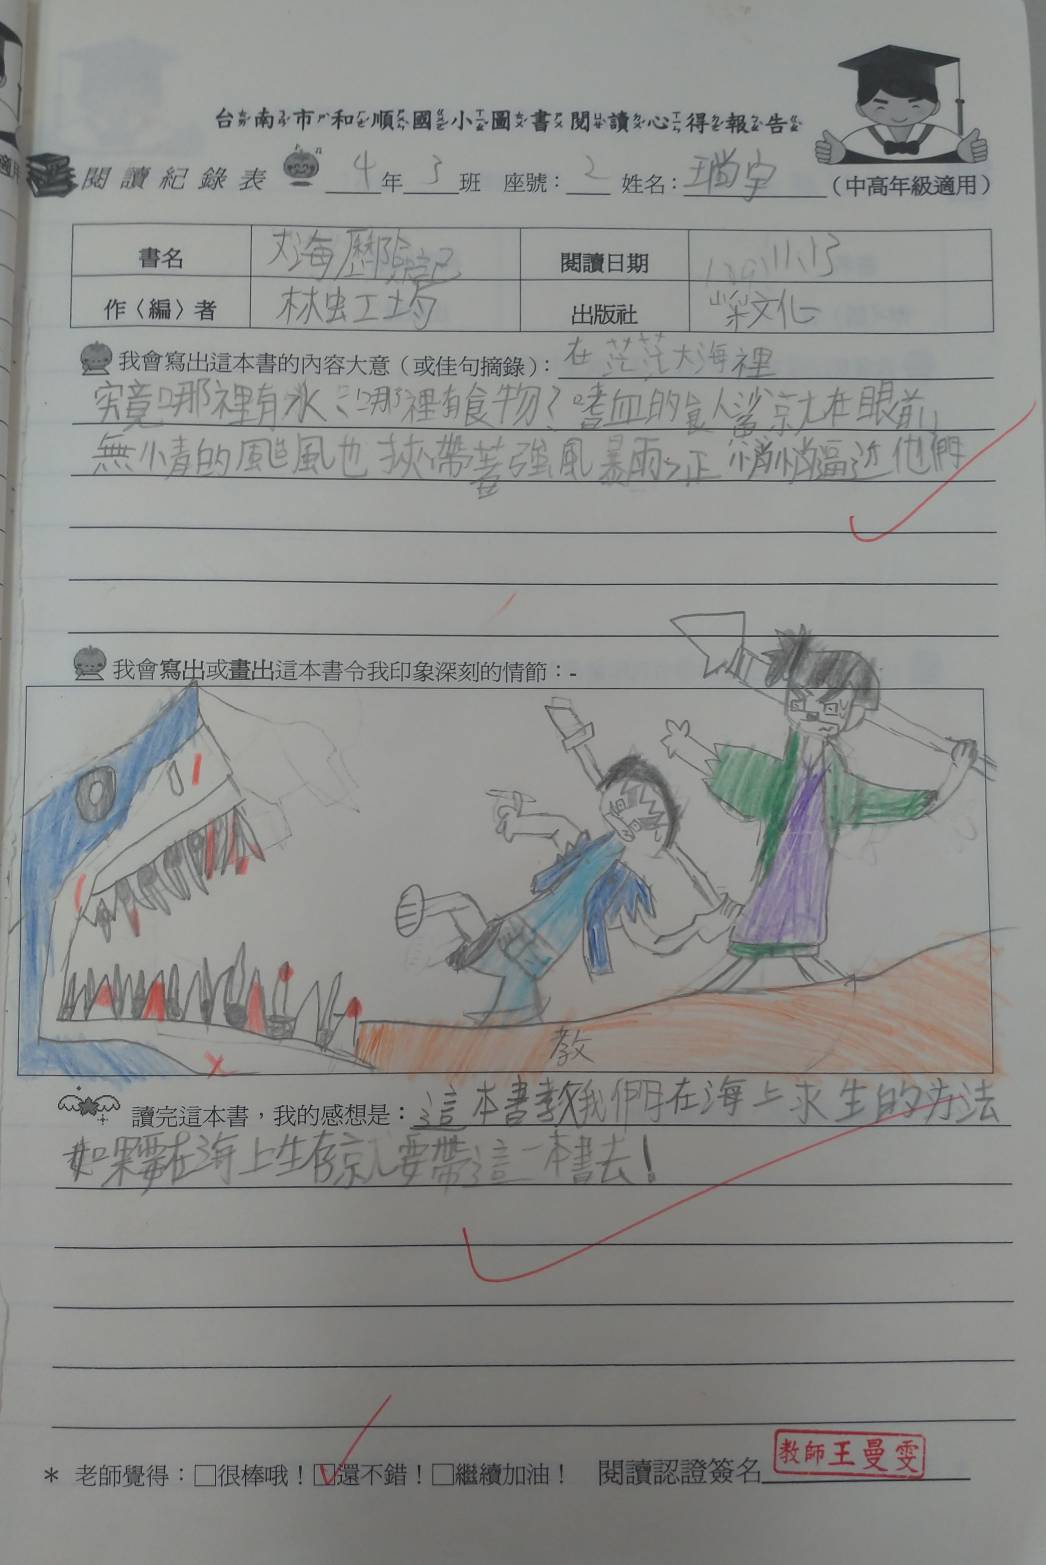 台南市和順國小圖書閱讀心得報告
閱讀紀錄表 4年3班 座號:2 姓名: (中高年級適用)
書名 大海歷險記 閱讀日期 11.13
作〈編〉者 林虫工均 出版社 彩文化
我會寫出這本書的內容大意(或佳句摘錄): 在茫茫大海裡
究竟哪裡有水?哪裡有食物?嗜血的食人鯊就在眼前,
無情的颱風也挾帶著強風暴雨,正悄悄逼近他們
我會寫出或畫出這本書令我印象深刻的情節:-
教
讀完這本書,我的感想是: 這本書教我們在海上求生的方法
如果要在海上生存就要帶這一本書去!
* 老師覺得:□很棒哦!☑還不錯!□繼續加油! 閱讀認證簽名 教師王曼雯